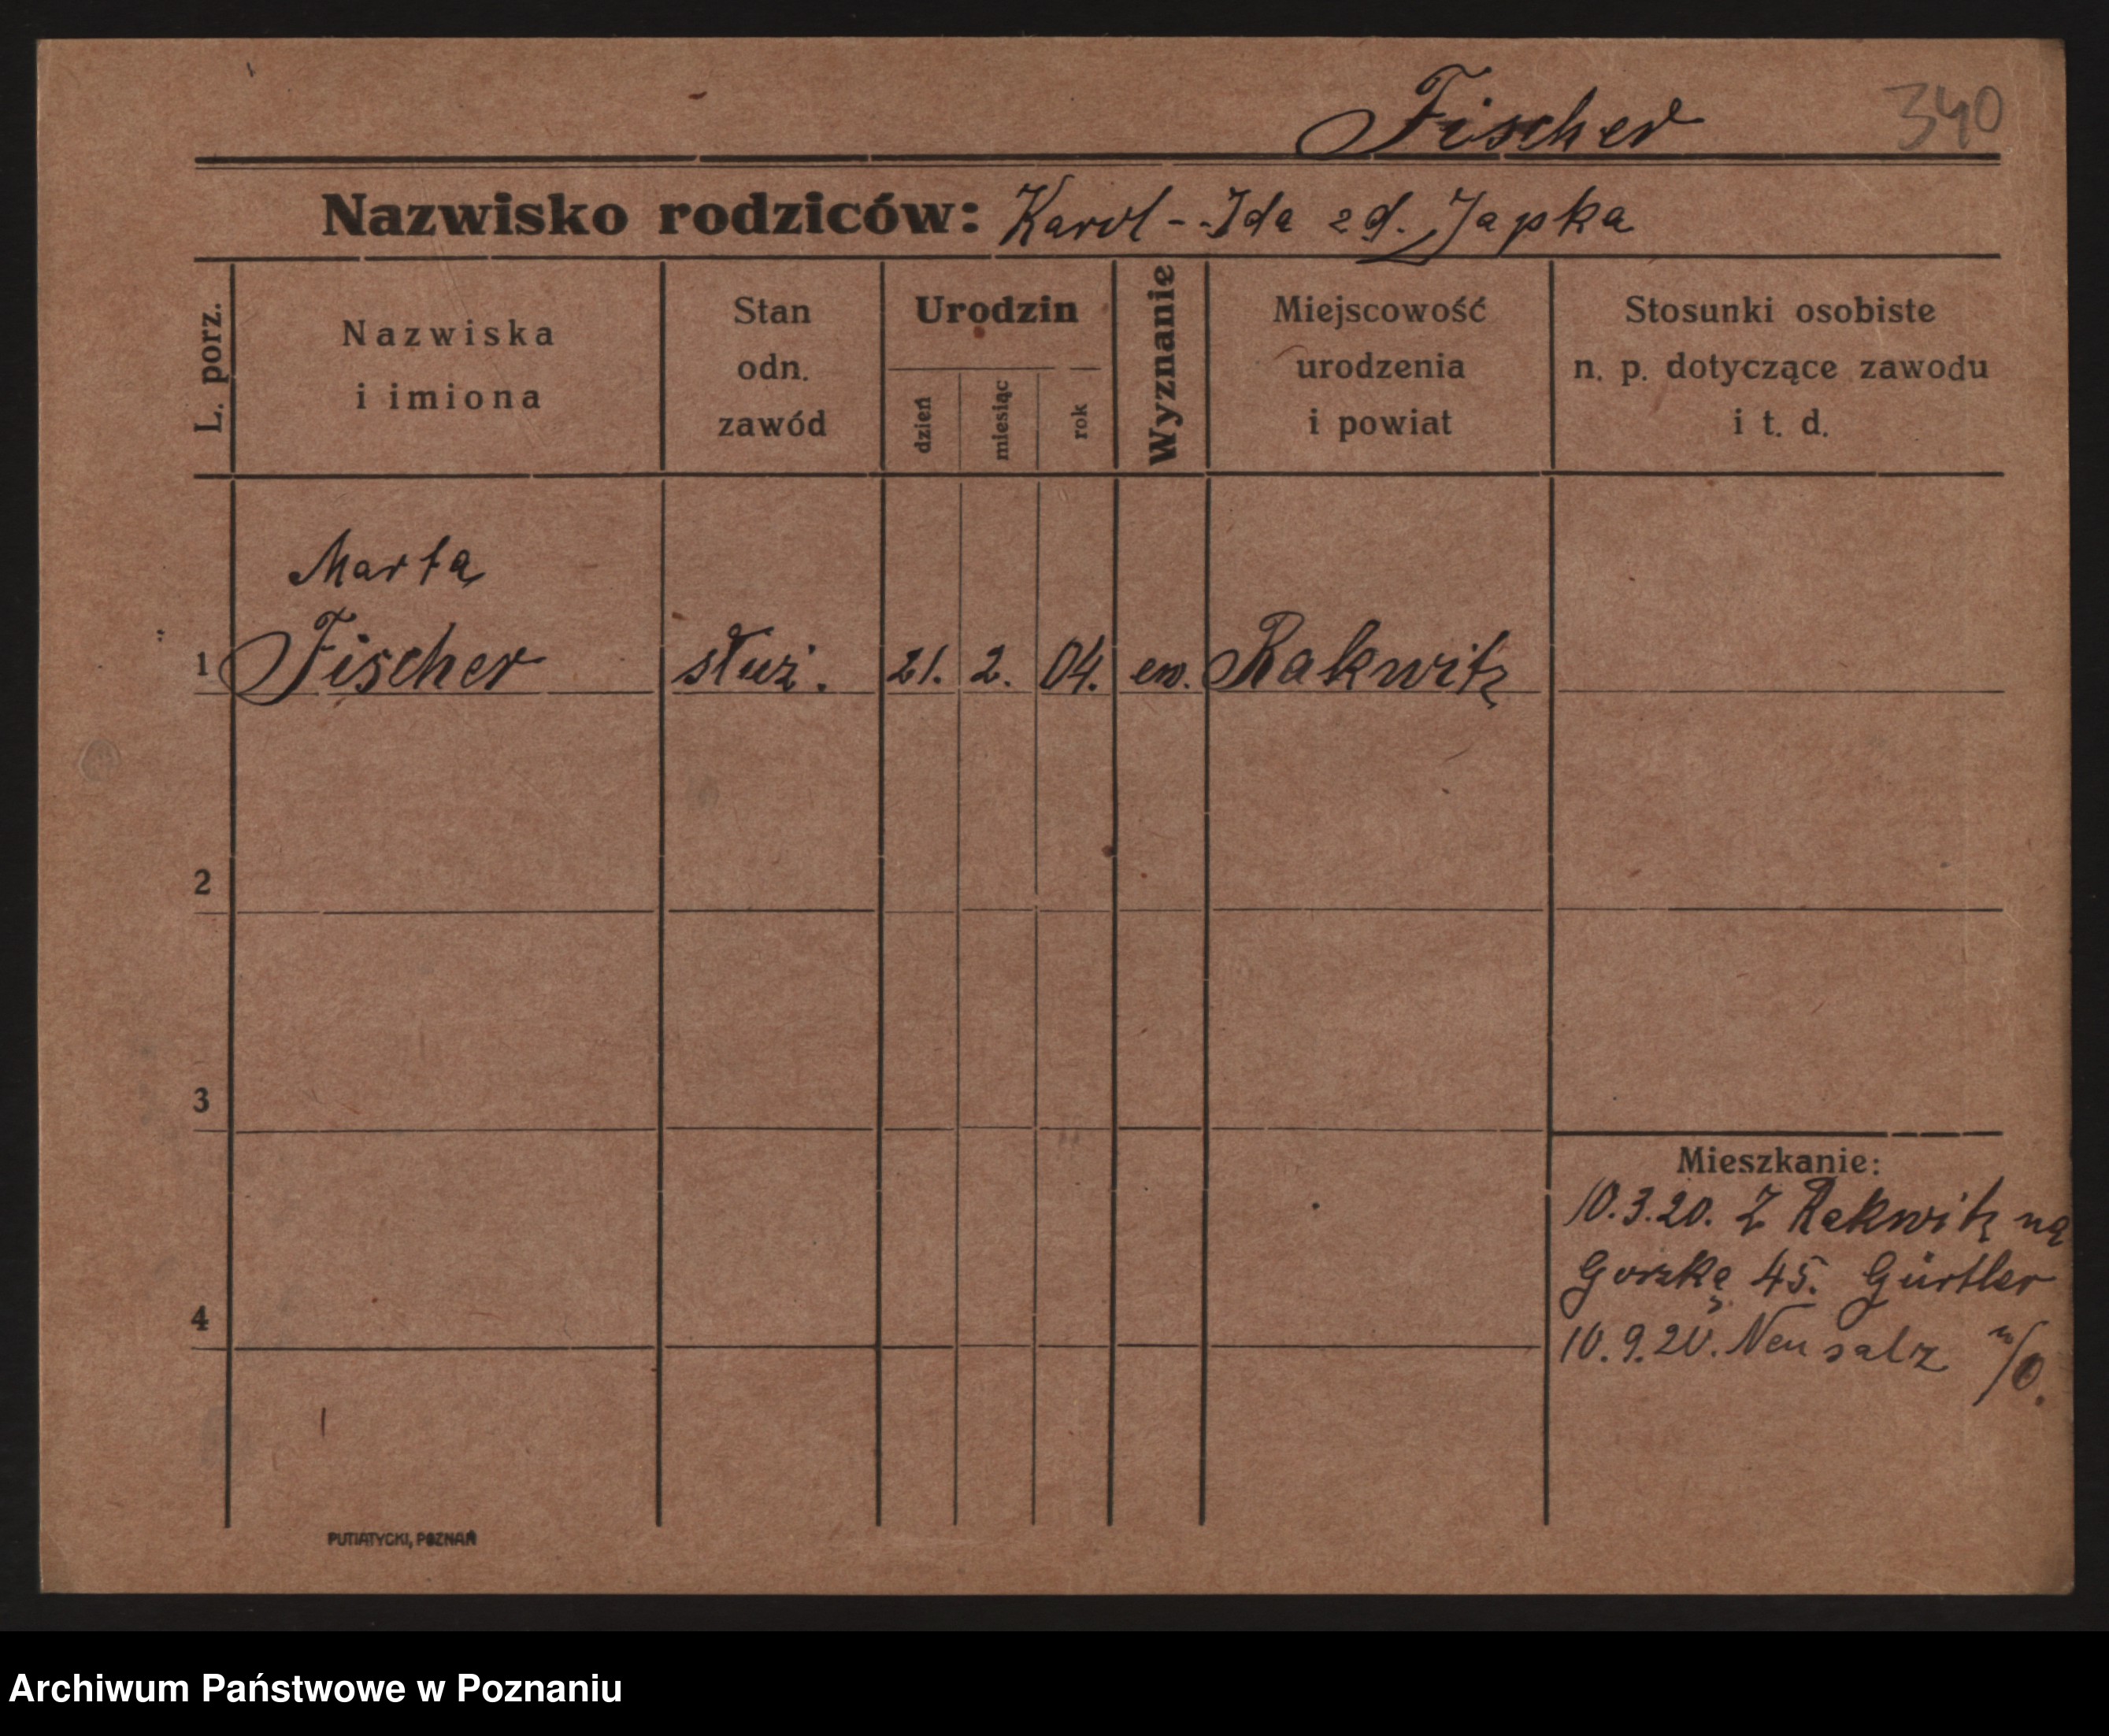 Fischer 340
Nazwisko rodziców: Karol - Ida zd. Japka
L. porz.
Nazwiska
i imiona
Stan
odn.
zawód
Urodzin
dzień
miesiąc
rok
Wyznanie
Miejscowość
urodzenia
i powiat
Stosunki osobiste
n. p. dotyczące zawodu
i t. d.
Marta
1 Fischer służ. 21. 2. 04. ew. Rakwitz
2
3
4
Mieszkanie:
10.3.20. Z Rakwitz na
45. Gürtler
10.9.20. Neusalz /O.
PUTIATYCKI, POZNAŃ
Archiwum Państwowe w Poznaniu